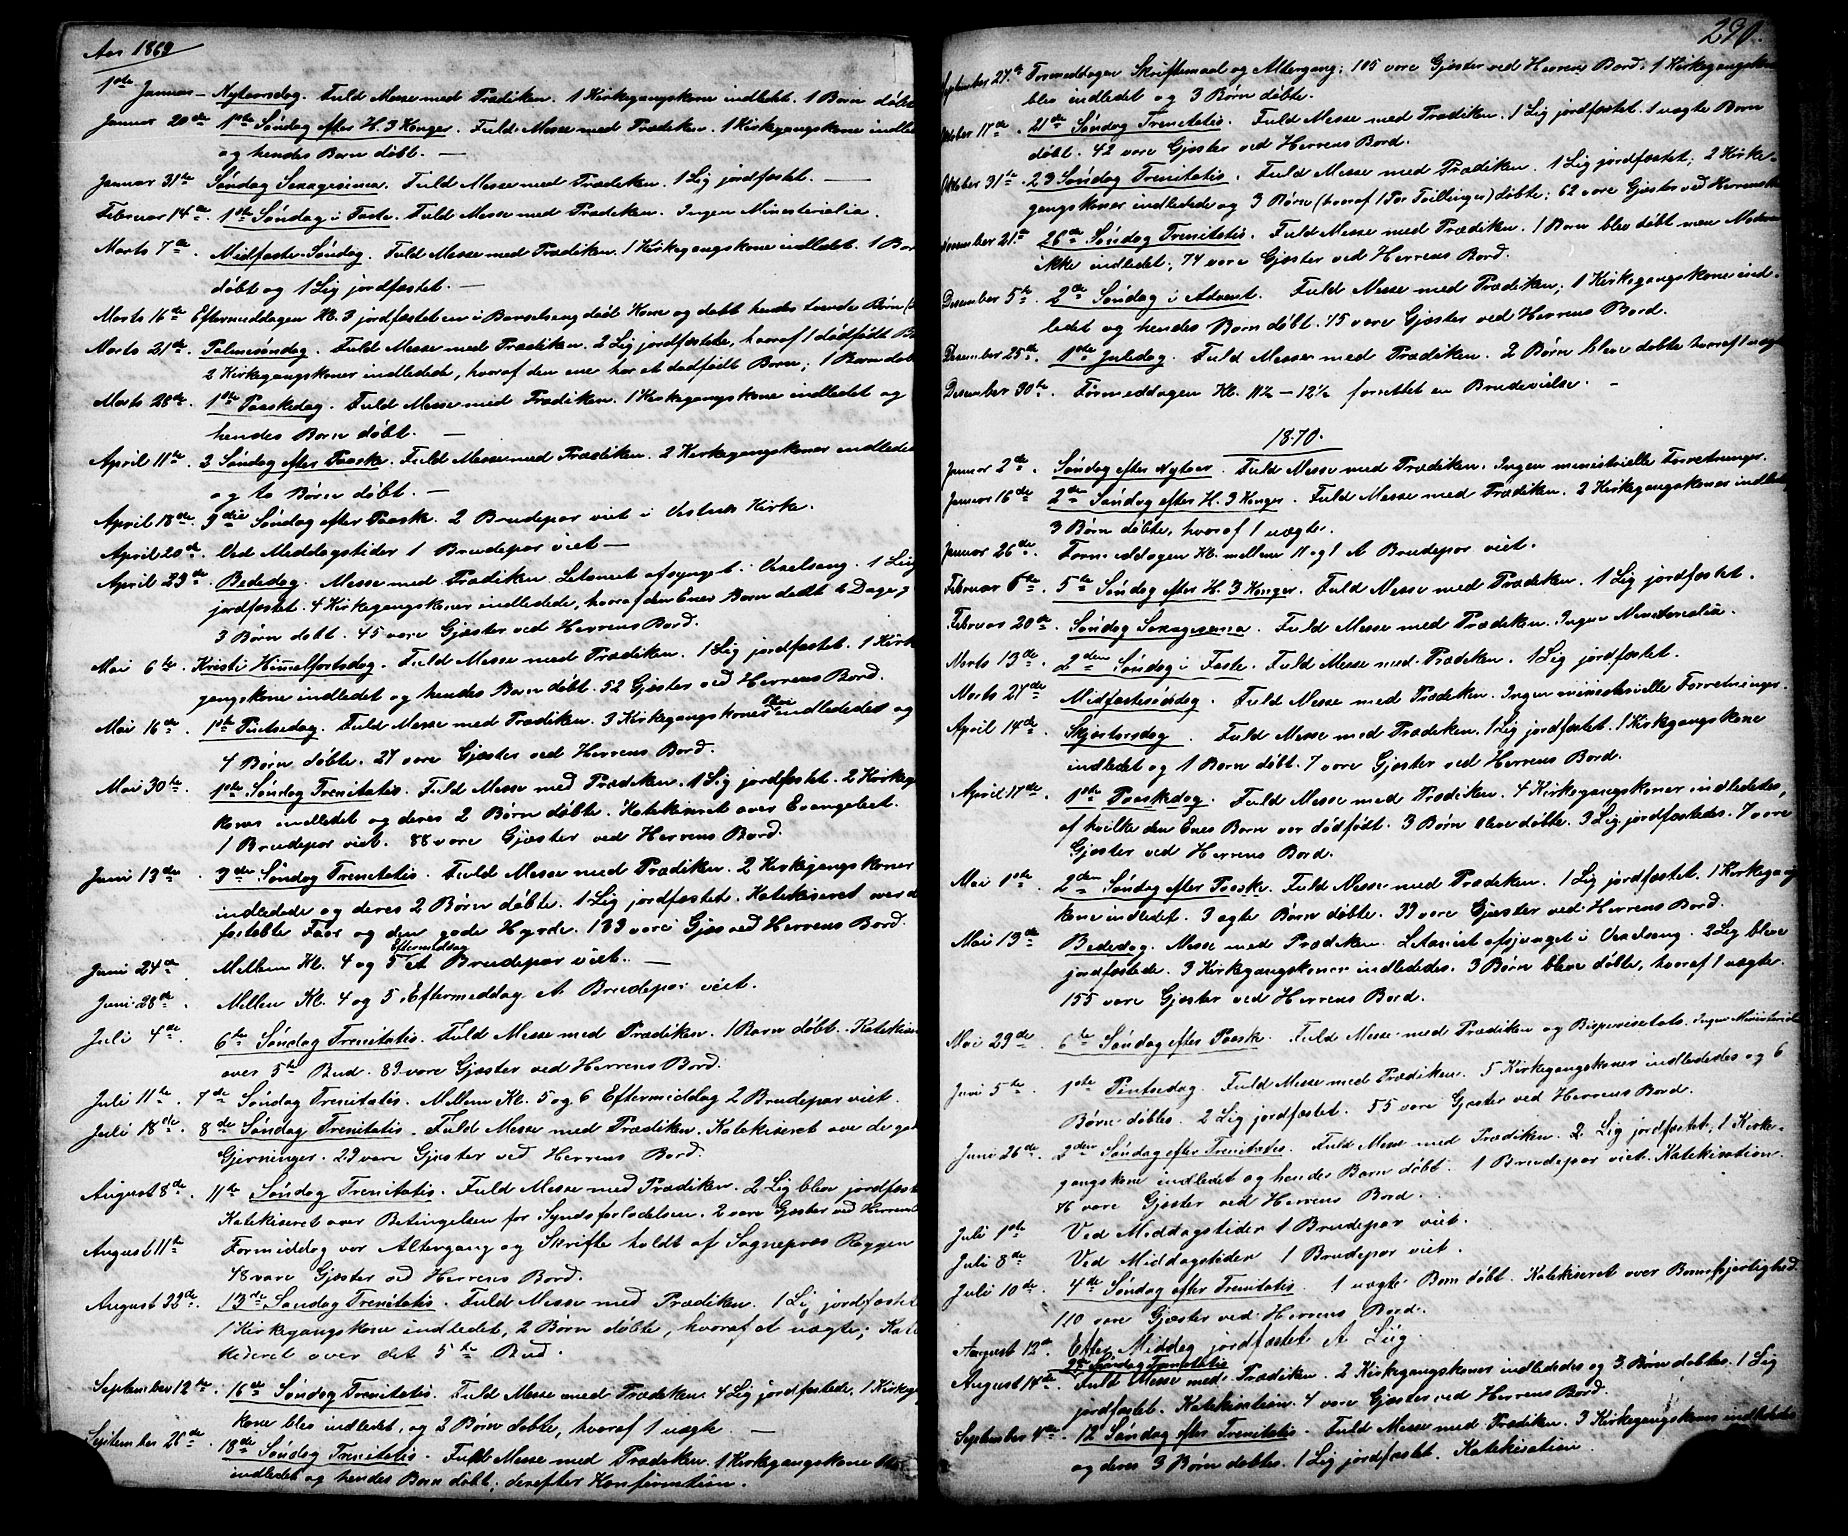 Aar 1869
1ste Januar – Nytaarsdag. Fuld Messe med Prædiken. 1 Kirkegangskone indledet. 1 Barn døbt
Januar 20de 1ste Søndag efter H. 3 Konger. Fuld Messe med Prædiken. 1 Kirkegangskone indle
og hendes Barn døbt. –
Januar 31te Søndag Sexagesima. Fuld Messe med Prædiken. 1 Lig jordfæstet. –
Februar 14de. 1ste Søndag i Faste. Fuld Messe med Prædiken. Ingen Ministerialia.
Marts 7de. Midfaste-Søndag. Fuld Messe med Prædiken. 1 Kirkegangskone indledet. 1 Bar
døbt og 1 Lig jordfæstet. –
Marts 16de Eftermiddagen Kl. 3 jordfæstet en i Barselseng død Kone og døbt hendes levende Børn
Marts 21de. Palmesøndag. Fuld Messe med Prædiken. 2 Lig jordfæstede, hvoraf 1 dødfødt B
2 Kirkegangskoner indledede, hvoraf den ene har et dødfødt Barn; 1 Barn døb
Marts 28de. 1ste Paaskedag. Fuld Messe med Prædiken. 1 Kirkegangskone indledet og
hendes Barn døbt. –
April 11te. 2 Søndag efter Paaske. Fuld Messe med Prædiken. 2 Kirkegangskoner indlede
og to Børn døbt. –
April 18de. 3die Søndag efter Paask. 2 Brudepar viet i Kirke.
April 20de. Ved Middagstider 1 Brudepar viet –
April 23de. Bededag. Messe med Prædiken. Letaniet afsynget. Vexelsang. 1 Liig
jordfæstet. 4 Kirkegangskoner indledede, hvoraf den Enes Barn dødt 6 Dage g
3 Børn døbt. 45 vare Gjæster ved Herrens Bord.
Mai 6te. Kristi Himmelfartsdag. Fuld Messe med Prædiken. 1 Lig jordfæstet. 1 Kirke
gangskone indledet og hendes Barn døbt. 52 Gjæster ved Herrens Bord.
Mai 16de. 1ste Pintsedag. Fuld Messe med Prædiken. 3 Kirkegangskoner bleve indledet og
4 Børn døbte. 27 vare Gjæster ved Herrens Bord.
Mai 30te. 1ste Søndag Trenitatis. Fuld Messe med Prædiken. 1 Lig jordfæstet. 2 Kirkeg
koner indledet og deres 2 Børn døbte. Katekiseret over Evangeliet.
1 Brudepar viet. 88 vare Gjæster ved Herrens Bord.
Juni 13de. 3de Søndag Trenitatis. Fuld Messe med Prædiken. 2 Kirkegangskoner
indledede og deres 2 Børn døbte. 1 Lig jordfæstet. Katekiseret over d
fortabte Faar og den gode Hyrde. 133 vare Gjæs ved Herrens Bord.
Juni 24de. Mellem Kl. 4 og 5 Eftermiddag et Brudepar viet. –
Juni 28de. Mellem Kl. 4 og 5 Eftermeddag et Brudepar viet.
Juli 4de. 6te Søndag Trenitatis. Fuld Messe med Prædiken. 1 Barn døbt. Katekise
over 5te Bud. 89 vare Gjæster ved Herrens Bord.
Juli 11te. 7de Søndag Trenitatis. Mellem Kl. 5 og 6 Eftermiddag 2 Brudepar viet.
Juli 18de. 8de Søndag Trenitatis. Fuld Messe med Prædiken. Katekiseret over de gode
Gjerninger. 29 vare Gjæster ved Herrens Bord.
August 8de. 11te Søndag Trenitatis. Fuld Messe med Prædiken. 2 Lig blev jordfæst
Katekiseret over Betingelsen for Syndsforladelsen. 2 vare Gjæster ved Herrens B
August 11te Formiddag var Altergang og Skrifte holdt af Sognepræs Røggen
48 vare Gjæster ved Herrens Bord.
August 22de. 13de Søndag Trenitatis. Fuld Messe med Prædiken. 1 Lig jordfæstet
1 Kirkegangskone indledet, 2 Børn døbte, hvoraf et uægte; Kate
kiseret over det 5te Bud.
September 12te. 16de Søndag Trenitatis. Fuld Messe med Prædiken. 4 Lig jordfæstede, 1 Kirkeg
kone blev indledet, og 2 Børn døbte, hvoraf 1 uægte –
September 26de. 18de Søndag Trenitatis. Fuld Messe med Prædiken. 1 Kirkegangskone blev
indledet og hendes Barn døbt; derefter Konfirmation.
290.
September 27de Formeddagen Skriftemaal og Altergang; 105 vare Gjæster ved Herrens Bord. 1 Kirkegangskone
blev indledet og 3 Børn døbte.
Oktober 17de. 21de Søndag Trenitatis. Fuld Messe med Prædiken. 1 Lig jordfæstet. 1 uægte Barn
døbt. 42 vare Gjæster ved Herrens Bord.
Oktober 31te. 23 Søndag Trenitatis. Fuld Messe med Prædiken. 1 Lig jordfæstet; 2 Kirke-
gangskoner indledede og 3 Børn (hvoraf 1 Par Tvillinger) døbte; 62 vare Gjæster ved Herrens Bord
November 21te. 26de Søndag Trenitatis. Fuld Messe med Prædiken. 1 Barn blev døbt men Moderen
ikke indledet; 74 vare Gjæster ved Herrens Bord.
Desember 5te. 2de Søndag i Advent. Fuld Messe med Prædiken; 1 Kirkegangskone ind-
ledet og hendes Barn døbt. 45 vare Gjæster ved Herrens Bord.
Desember 25de. 1ste Juledag. Fuld Messe med Prædiken. 2 Børn bleve døbte hvoraf 1 uægte
Desember 30te. Formeddagen Kl. 11½ – 12½ forrettet en Brudevielse. –
1870.
Januar 2de. Søndag efter Nytaar. Fuld Messe med Prædiken. Ingen ministrielle Forretninger.
Januar 16de 2den Søndag efter H. 3 Konger. Fuld Messe med Prædiken. 2 Kirkegangskoner indledet,
3 Børn døbte, hvoraf 1 uægte.
Januar 26de. Formeddagen Kl. mellem 11 og 1 et Brudepar viet.
Februar 6te. 5te Søndag efter H. 3 Konger. Fuld Messe med Prædiken. 1 Lig jordfæstet.
Februar 20de. Søndag Sexagesima. Fuld Messe med Prædiken. Ingen Ministerialia.
Marts 13de. 2den Søndag i Faste. Fuld Messe med Prædiken. 1 Lig jordfæstet.
Marts 27de Midfastesøndag. Fuld Messe med Prædiken. Ingen ministerielle Forretninger.
April 14de. Skjærtorsdag. Fuld Messe med Prædiken. 1 Lig jordfæstet. 1 Kirkegangskone
indledet og 1 Barn døbt. 7 vare Gjæster ved Herrens Bord.
April 17de. 1ste Paaskedag. Fuld Messe med Prædiken. 4 Kirkegangskoner indledetes,
af hvilke den Enes Barn var dødfødt. 3 Børn bleve døbte. 3 Lig jordfæstedes. 7 vare
Gjæster ved Herrens Bord.
Mai 1ste. 2den Søndag efter Paaske. Fuld Messe med Prædiken. 1 Lig jordfæstet. 1 Kirkegang
kone indledet. 3 ægte Børn døbte. 39 vare Gjæster ved Herrens Bord.
Mai 13de Bededag. Messe med Prædiken. Letaniet afsjunget i Vexelsang. 2 Lig bleve
jordfæstede. 3 Kirkegangskoner indledes. 3 Børn bleve døbte, hvoraf 1 uægte.
155 vare Gjæster ved Herrens Bord.
Mai 29de. 6te Søndag efter Paask. Fuld Messe med Prædiken og Bispevisitats. Ingen Ministerialia
Juni 5te. 1ste Pintsedag. Fuld Messe med Prædiken. 5 Kirkegangskoner indlededes og 6
Børn døbtes. 2 Lig jordfæstet. 55 vare Gjæster ved Herrens Bord.
Juni 26de. 2den Søndag efter Trenitatis. Fuld Messe med Prædiken. 2 Lig jordfæstet; 1 Kirke-
gangskone indledet og hendes Barn døbt. 1 Brudepar viet. Katekisation.
46 vare Gjæster ved Herrens Bord.
Juli 1ste. Ved Middagstider 1 Brudepar viet.
Juli 8de. Ved Middagstider 1 Brudepar viet.
Juli 10de. 4de Søndag efter Trenitatis. 1 uægte Barn døbt. Katekiseret over Bornekjærlighed.
110 vare Gjæster ved Herrens Bord.
August 12te. Efter Middag jordfæstet et Liig.
9de Søndag Trenitatis
August 14de. Fuld Messe med Prædiken. 2 Kirkegangskoner indlededes og 3 Børn døbtes. 1 Lig
jordfæstet. Katekisation. 4 vare Gjæster ved Herrens Bord.
September 4de. 12 Søndag efter Trenitatis. Fuld Messe med Prædiken. 3 Kirkegangskoner indlededes
og deres 3 Børn døbtes. 1 Lig jordfæstet. Katekisation.